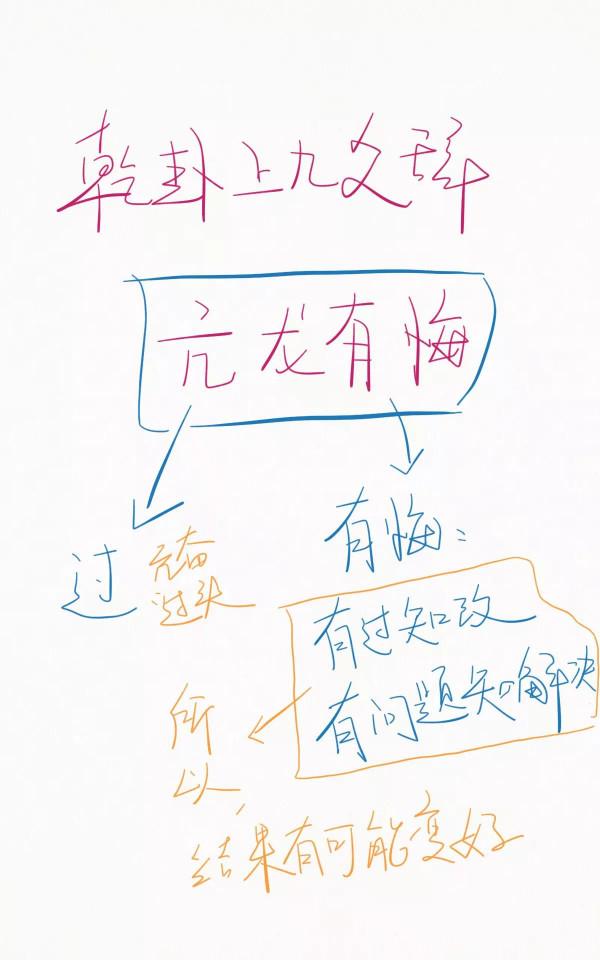 乾卦上九爻辞
亢龙有悔
过
亢奋
过头
有悔：
有过知改
有问题知解决
所
以，
结果有可能变好